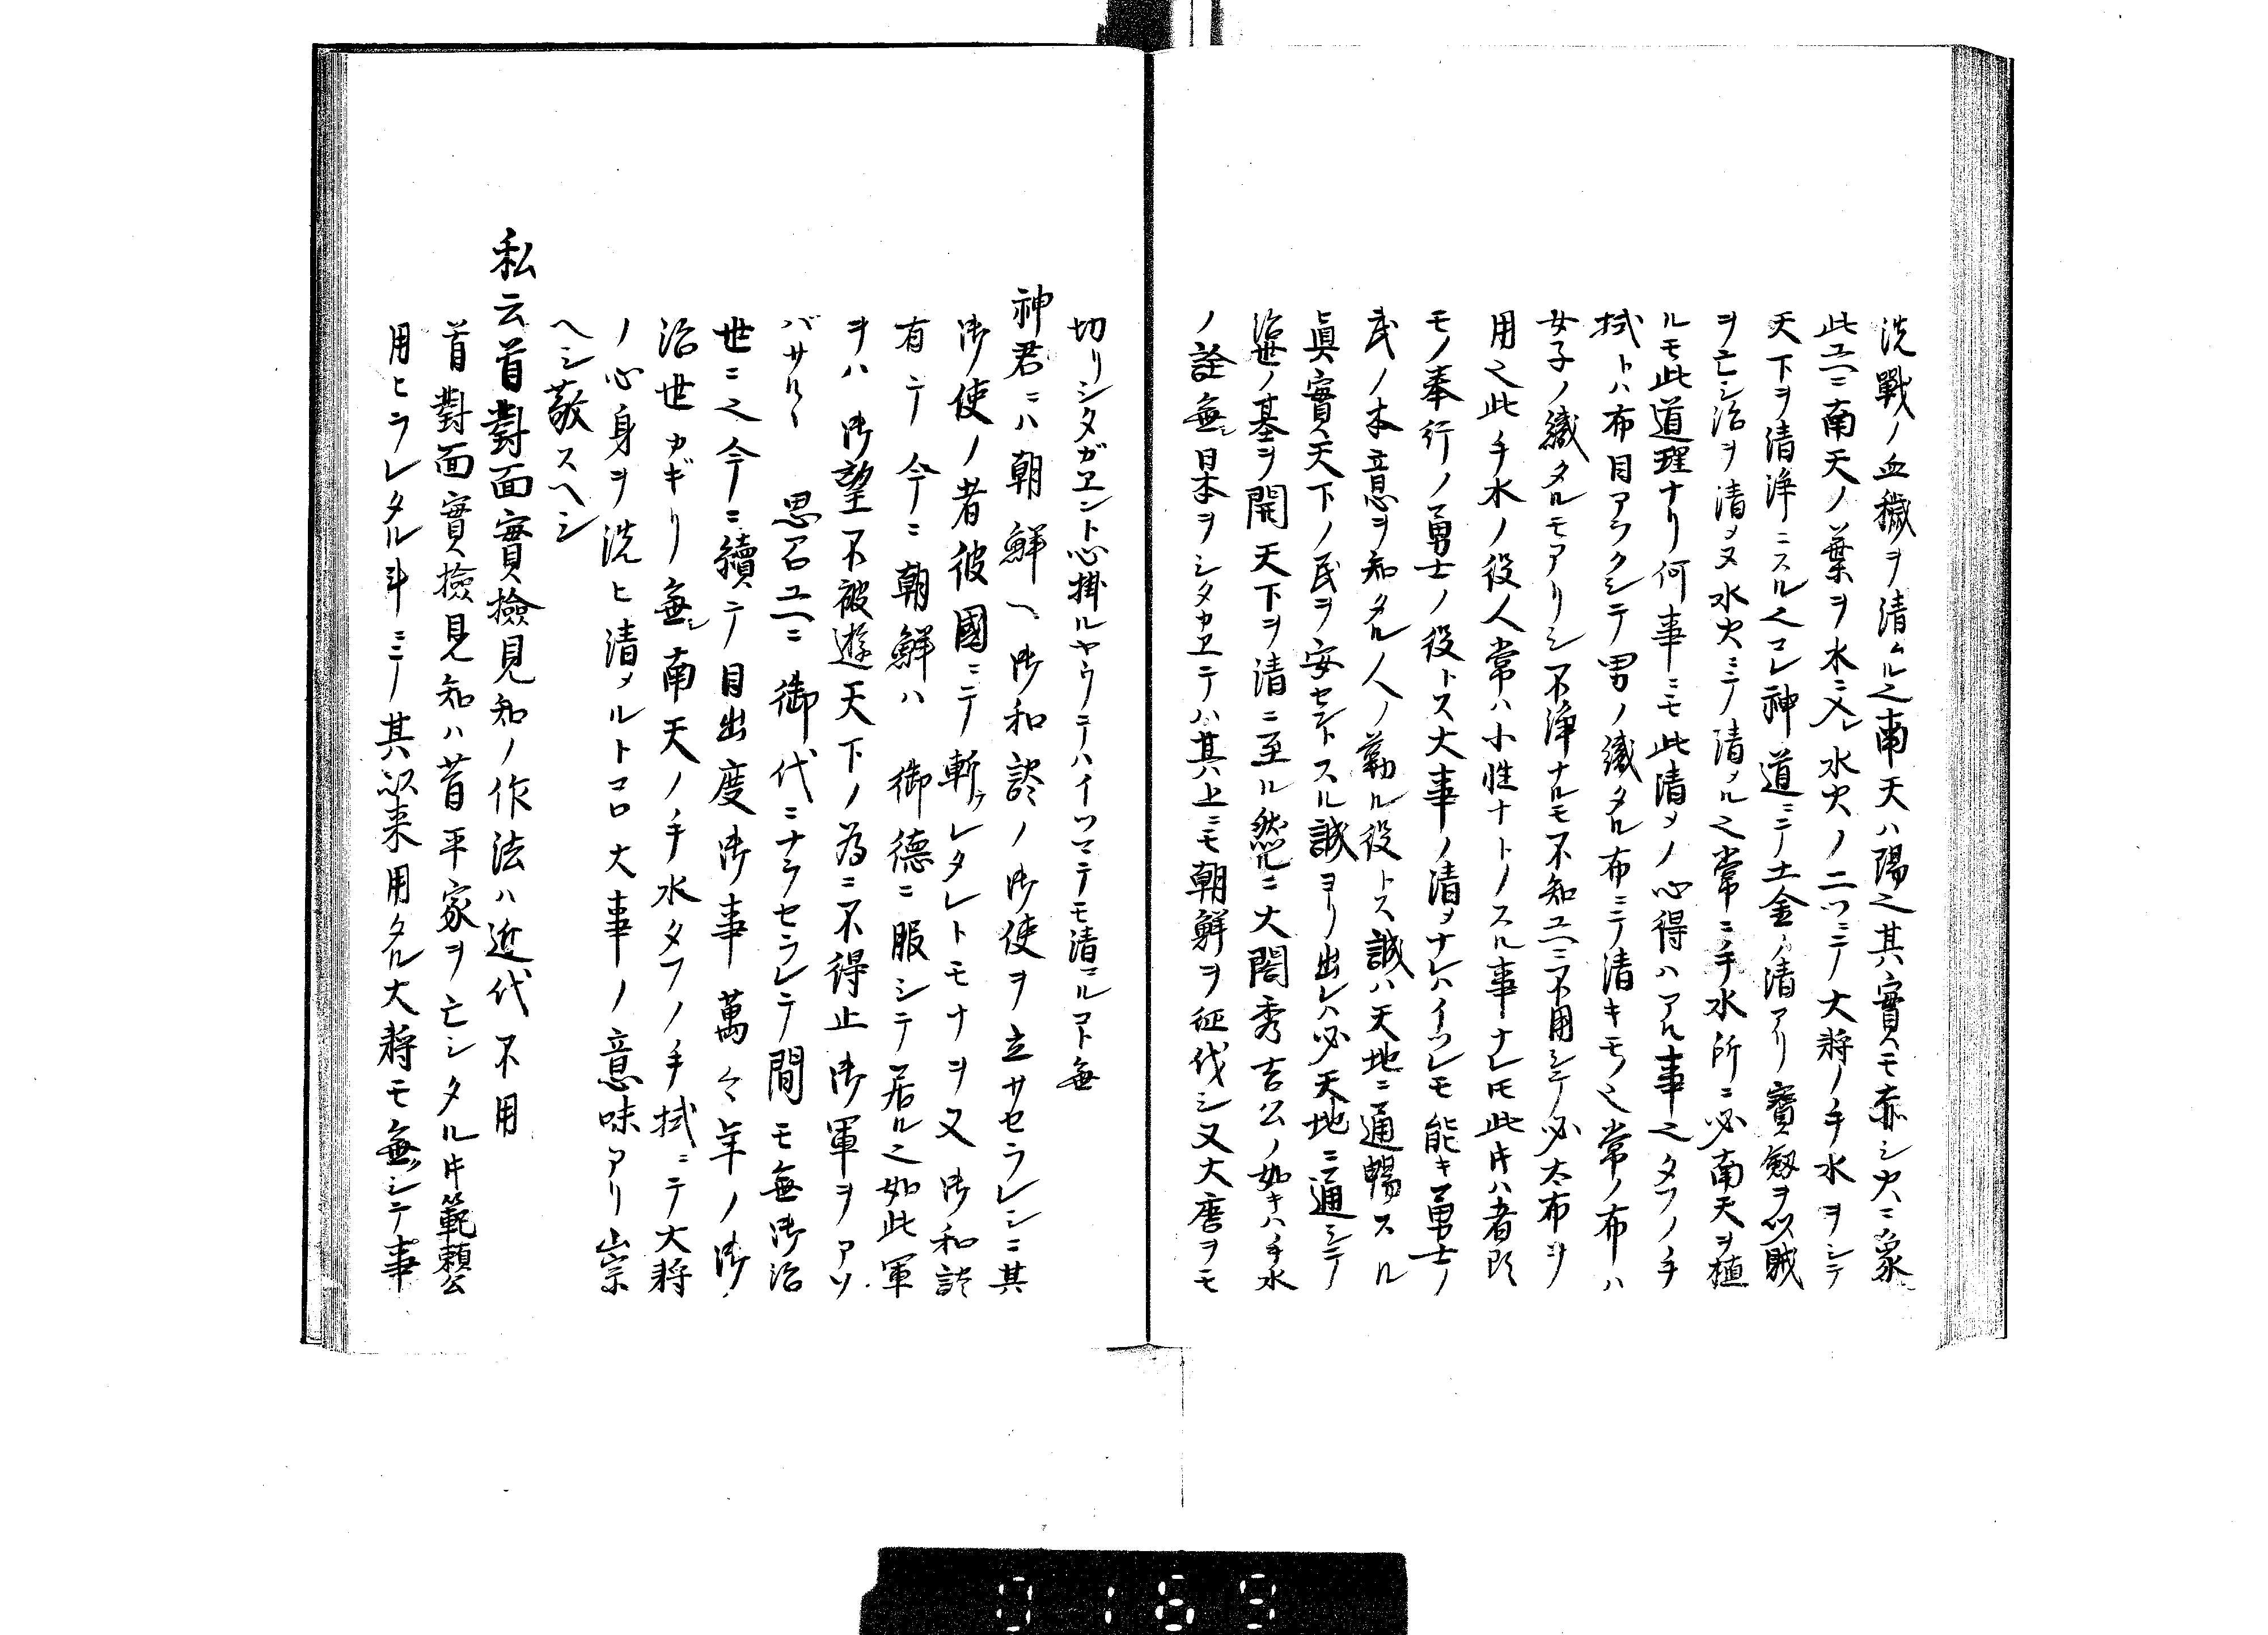 洗戰ノ血穢ヲ清ムル之南天ハ陽之其實モ赤シ火ニ象
此故ニ南天ノ葉ヲ水ニ入レ水火ノ二ツニテ大將ノ手水ヲシテ
天下ヲ清淨ニスル之コレ神道ニテ土金ノ清アリ寶劔ヲ以賊
ヲ亡シ治ヲ清メ又水火ニテ清メル之常ニ手水所ニ必南天ヲ植
ルモ此道理ナリ何事ニモ此清メノ心得ハアル事之タフノ手
拭トハ布目アラクシテ男ノ織タル布ニテ清キモノ之常ノ布ハ
女子ノ織タルモアリシ不淨ナルモ不知故ニ不用シテ必太布ヲ
用之此手水ノ役人常ハ小性ナトノスル事ナレ𪜈此時ハ者頭
モノ奉行ノ勇士ノ役トス大事ノ清メナレハイツレモ能キ勇士ノ
武ノ本意ヲ知タル人ノ勤ル役トス誠ハ天地ニ通暢スル
眞實天下ノ民ヲ安セントスル誠ヨリ出レハ必天地ニ通シテ
治世ノ基ヲ開天下ヲ清ニ至ル然ルニ大閤秀吉公ノ如キハ手水
ノ詮無シ日本ヲシタカヱテハ其上ニモ朝鮮ヲ征伐シ又大唐ヲモ
切リシタガヱント心掛ルヤウニテハイツマテモ清マルコト無
神君ニハ朝鮮ヘ御和談ノ御使ヲ立サセラレシニ其
御使ノ者彼國ニテ斬ラレタレトモナヲ又御和談
有テ今ニ朝鮮ハ御德ニ服シテ居ル之如此軍
ヲハ御望不被遊天下ノ為ニ不得止御軍ヲアソ
バサルヽ思召故ニ御代ニナラセラレテ間モ無御治
世ニ之今ニ續テ目出度御事萬々年ノ御
治世カギリ無シ南天ノ手水タフノ手拭ニテ大將
ノ心身ヲ洗ヒ清メルトコロ大事ノ意味アリ崇
ヘシ敬スヘシ
私云首對面實撿見知ノ作法ハ近代不用
首對面實撿見知ハ昔平家ヲ亡シタル時範賴公
用ヒラレタル斗ニテ其以来用タル大將モ無シテ事